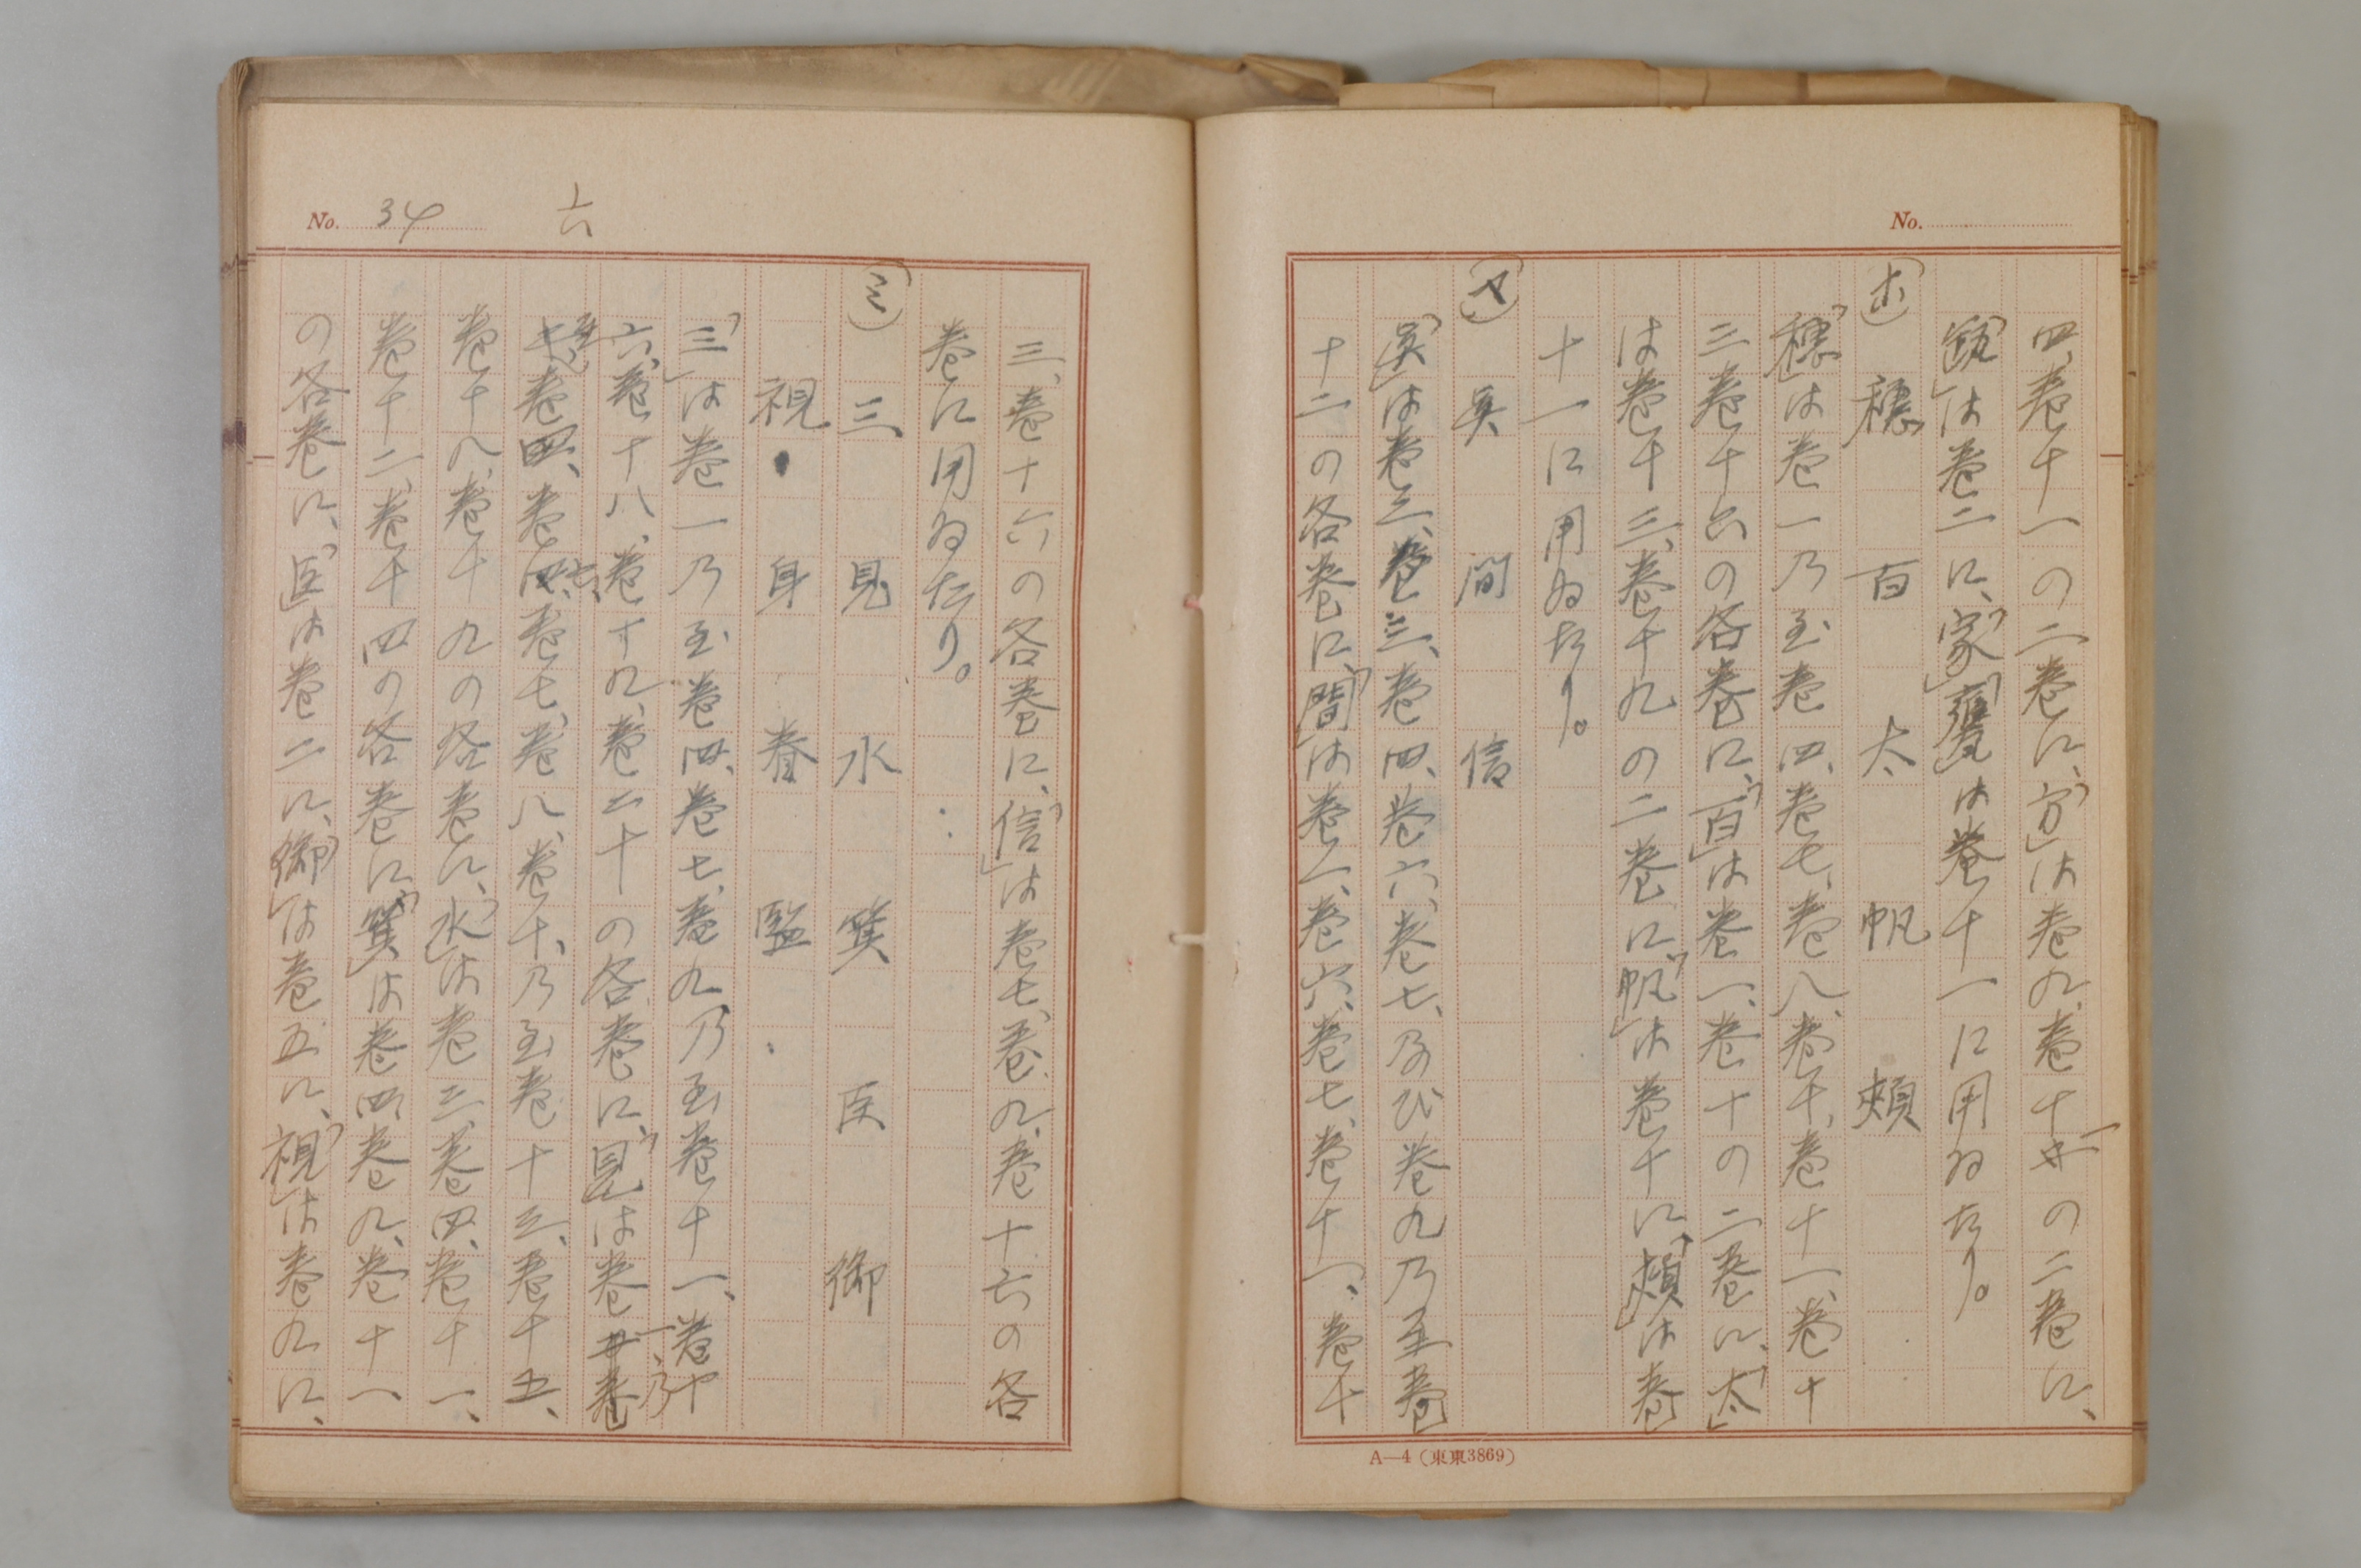 No.
四、巻十一の二巻に、「方」は巻九、巻十一の二巻に、
「瓺」は巻二に、「家」「甕」は巻十一に用ゐたり。
(ホ) 穗 百 太 帆 頰
「穗」は巻一乃至巻四、巻七、巻八、巻十、巻十一、巻十
三、巻十六の各巻に、「百」は巻一、巻十の二巻に、「太」
は巻十三、巻十九の二巻に「帆」は巻十に、「頰」は巻
十一に用ゐたり。
(マ) 眞 間 信
「眞」は巻二、巻三、巻四、巻六、巻七、及び巻九乃至巻
十二の各巻に、「間」は巻二、巻六、巻七、巻十一、巻十
A—4 (東東3869)
No. 34
六
三、巻十六の各巻に、「信」は巻七、巻九、巻十六の各
巻に用ゐたり。
(ミ) 三 見 水 箕 𦣝 御
視 身 眷 監
「三」は巻一乃至巻四、巻七、巻九、乃至巻十一、巻十
六、巻十八、巻十九、巻二十の各巻に、「見」は巻一乃
至巻四、巻七、巻七、巻八、巻十、乃至巻十三、巻十五、
巻十八、巻十九の各巻に、「水」は巻三、巻四、巻十一、
巻十二、巻十四の各巻に、「箕」は巻四、巻九、巻十一
の各巻に、は巻二に、「御」は巻五に、「視」は巻九に、